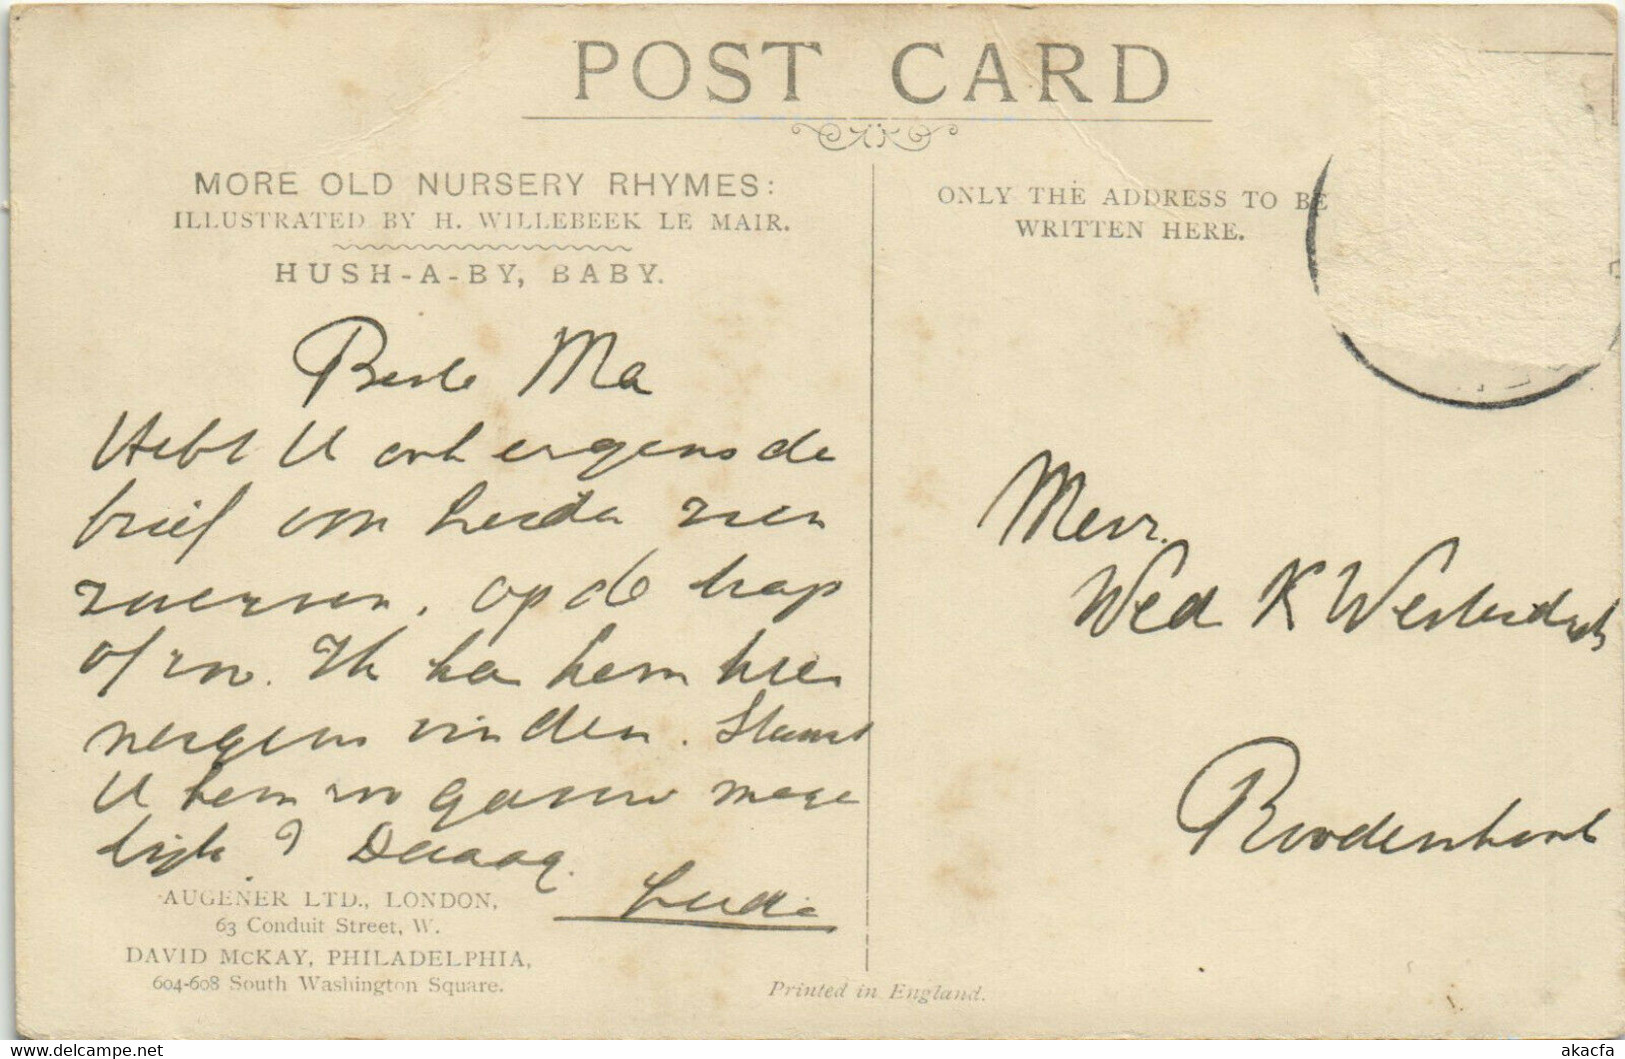 POST CARD
MORE OLD NURSERY RHYMES:
ILLUSTRATED BY H. WILLEBEEK LE MAIR.
HUSH-A-BY, BABY.
ONLY THE ADDRESS TO BE
WRITTEN HERE.
Beste Ma
Hebt U ook ergens de
brief van zien
zwerven. op de trap
of zoo. Ik kan hem hier
nergens vinden. Stuurt
U hem zoo gauw moge
lijk? Daaag.
Mevr.
Wed K
Roodenhoek
AUGENER LTD., LONDON,
63 Conduit Street, W.
DAVID McKAY, PHILADELPHIA,
604-608 South Washington Square.
Printed in England.
akacfa